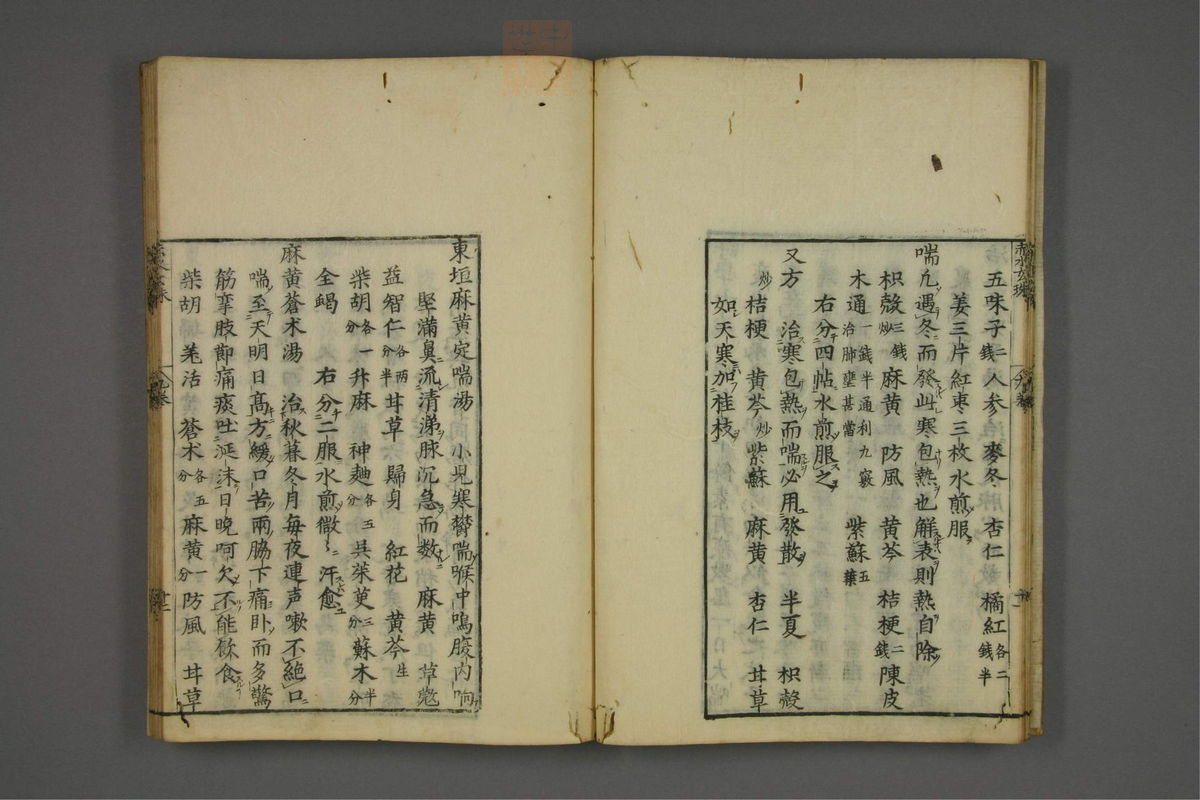 五味子二錢人參麥冬杏仁橘紅各二錢半
姜三片紅棗三枚水煎服
喘凡遇冬而發此寒包熱也解表則熱自除
枳殼三錢炒麻黃防風黃芩桔梗二錢陳皮
木通一錢半通利九竅治肺壅甚當紫蘇五葉
右分四帖水煎服之
又方治寒包熱而喘必用發散半夏枳殼
炒桔梗黃芩炒紫蘇麻黃杏仁甘草
如天寒加桂枝
東垣麻黃定喘湯小児寒欝喘喉中鳴腹内响
堅滿鼻流清涕脉沉急而数麻黄草蔲
益智仁各兩分半甘草歸身紅花黄芩生
柴胡各一分升麻神麯各五分呉茱萸三分蘇木半分
全蝎右分二服水煎微〻汗愈
麻黄蒼术湯治秋暮冬月每夜連声嗽不絶口
喘至天明日高方緩口苦兩脇下痛卧而多驚
筋挛肢節痛痰吐涎沫日晚呵欠不能飲食
柴胡羌活蒼术各五分麻黄一分防風甘草